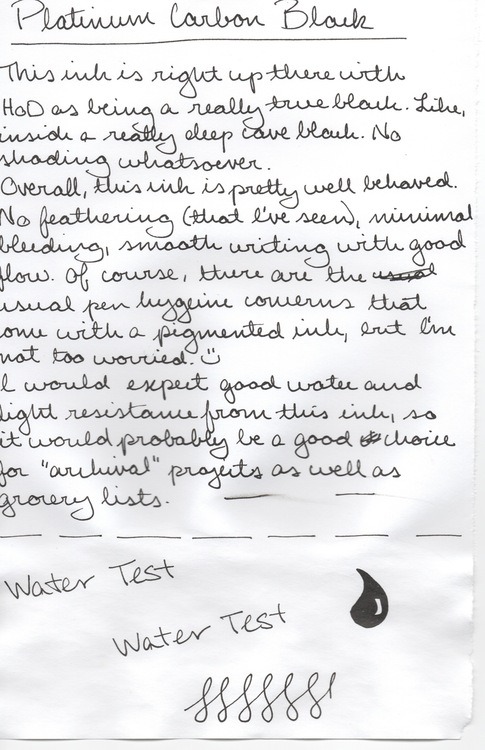 Platinum Carbon Black
This ink is right up there with
HoD as being a really true black. Like,
inside a really deep cave black. No
shading whatsoever.
Overall, this ink is pretty well behaved.
No feathering (that I've seen), minimal
bleeding, smooth writing with good
flow. Of course, there are the usual
usual pen hygeine concerns that
come with a pigmented ink, but I'm
not too worried. :)
I would expect good water and
light resistance from this ink, so
it would probably be a good choice
for "archival" projects as well as
grocery lists.
Water Test
Water Test